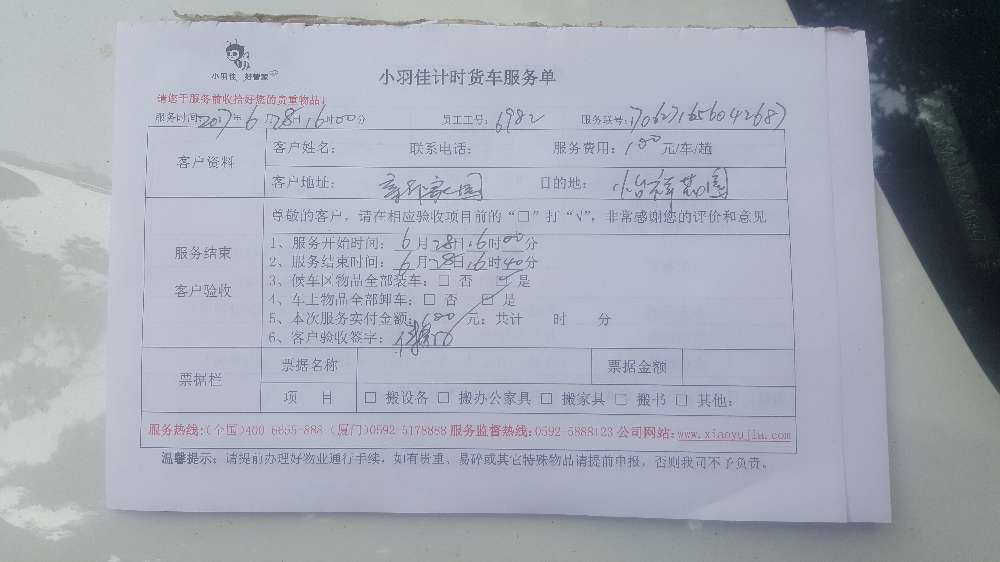 小羽佳 好管家
小羽佳计时货车服务单
请您于服务前收拾好您的贵重物品！
服务时间：2017年6月28日16时00分 员工工号：6982 服务联号：
客户资料
客户姓名： 联系电话： 服务费用：100元/车/趟
客户地址： 家园 目的地：怡祥花园
尊敬的客户，请在相应验收项目前的“□”打“√”，非常感谢您的评价和意见
服务结束
客户验收
1、服务开始时间：6月28日16时00分
2、服务结束时间：6月28日16时40分
3、候车区物品全部装车：□ 否 □ 是
4、车上物品全部卸车：□ 否 □ 是
5、本次服务实付金额：100元；共计 时 分
6、客户验收签字：
票据栏
票据名称 票据金额
项 目 □ 搬设备 □ 搬办公家具 □ 搬家具 □ 搬书 □ 其他：
服务热线：(全国)400-6855-888 (厦门)0592-5178888 服务监督热线：0592-5888123 公司网站：www.xiaoyujia.com
温馨提示：请提前办理好物业通行手续，如有贵重、易碎或其它特殊物品请提前申报，否则我司不予负责。